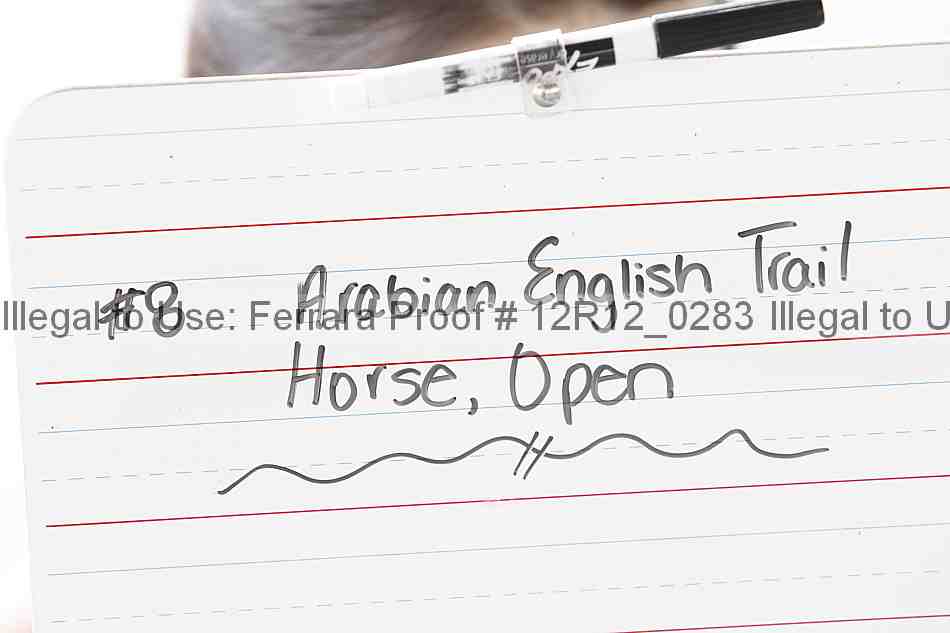 #8 Arabian English Trail
Illegal to Use: Ferrara Proof # 12R12_0283 Illegal to U
Horse, Open